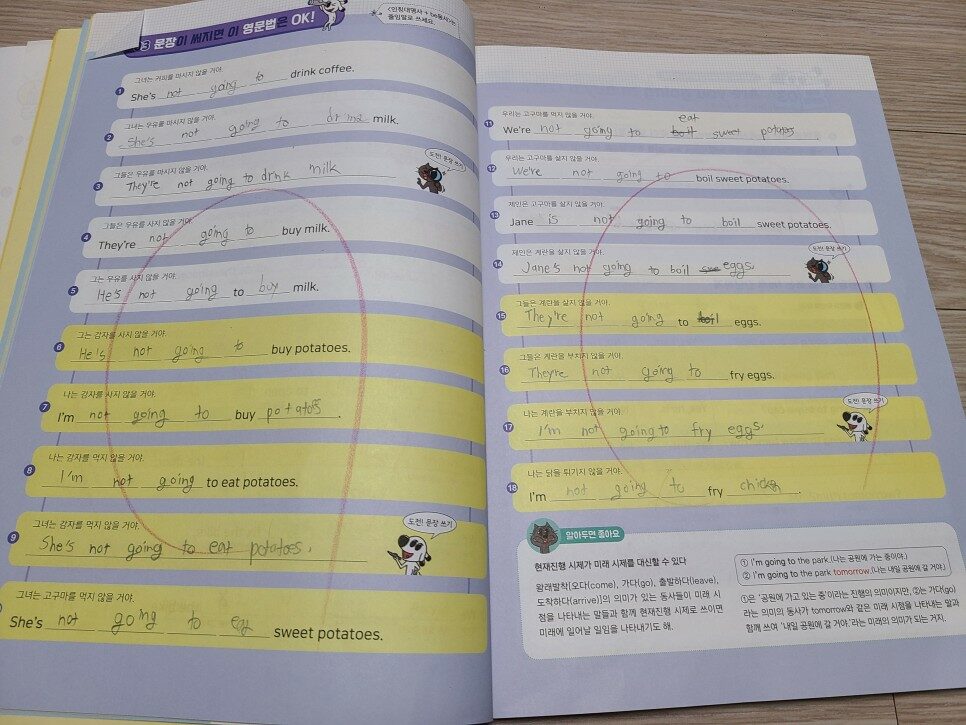 3 문장이 써지면 이 영문법은 OK!
<인칭대명사 + be동사>는
줄임말로 쓰세요.
1 그녀는 커피를 마시지 않을 거야.
She's not going to drink coffee.
2 그녀는 우유를 마시지 않을 거야.
She's not going to drink milk.
도전! 문장 쓰기
3 그들은 우유를 마시지 않을 거야.
They're not going to drink milk
4 그들은 우유를 사지 않을 거야.
They're not going to buy milk.
5 그는 우유를 사지 않을 거야.
He's not going to buy milk.
6 그는 감자를 사지 않을 거야.
He's not going to buy potatoes.
7 나는 감자를 사지 않을 거야.
I'm not going to buy potatos.
8 나는 감자를 먹지 않을 거야.
I'm not going to eat potatoes.
도전! 문장 쓰기
9 그녀는 감자를 먹지 않을 거야.
She's not going to eat potatoes.
그녀는 고구마를 먹지 않을 거야.
She's not going to sweet potatoes.
11 우리는 고구마를 먹지 않을 거야.
eat
We're not going to boil sweet potatoes
12 우리는 고구마를 삶지 않을 거야.
We're not going to boil sweet potatoes.
13 제인은 고구마를 삶지 않을 거야.
Jane is not going to boil sweet potatoes.
도전! 문장 쓰기
14 제인은 계란을 삶지 않을 거야.
Jane's not going to boil eggs.
15 그들은 계란을 삶지 않을 거야.
They're not going to boil eggs.
16 그들은 계란을 부치지 않을 거야.
They're not going to fry eggs.
도전! 문장 쓰기
17 나는 계란을 부치지 않을 거야.
I'm not going to fry eggs.
18 나는 닭을 튀기지 않을 거야.
I'm not going to fry chicken.
알아두면 좋아요
현재진행 시제가 미래 시제를 대신할 수 있다
왕래발착[오다(come), 가다(go), 출발하다(leave),
도착하다(arrive)]의 의미가 있는 동사들이 미래 시
점을 나타내는 말들과 함께 현재진행 시제로 쓰이면
미래에 일어날 일임을 나타내기도 해.
① I'm going to the park.(나는 공원에 가는 중이야.)
② I'm going to the park tomorrow.(나는 내일 공원에 갈 거야.)
①은 '공원에 가고 있는 중'이라는 진행의 의미이지만, ②는 가다(go)
라는 의미의 동사가 tomorrow와 같은 미래 시점을 나타내는 말과
함께 쓰여 '내일 공원에 갈 거야.'라는 미래의 의미가 되는 거지.